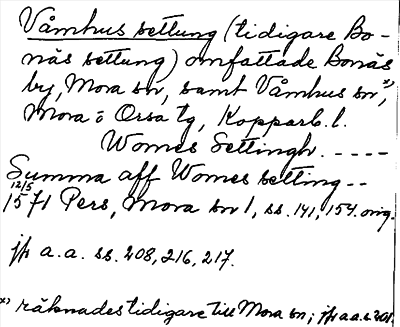 Våmhus settung (tidigare Bo-
näs settung) omfattade Bonäs
by, Mora sn, samt Våmhus sn,*)
Mora o Orsa tg, Kopparb. l.
Womes Settingh. ----
Summa aff Womes setting --
12/5
1571 Pers, Mora sn 1, ss. 141, 154. orig.
jfr a.a. ss. 208, 216, 217.
*) räknades tidigare till Mora sn; jfr a.a. s. 201.